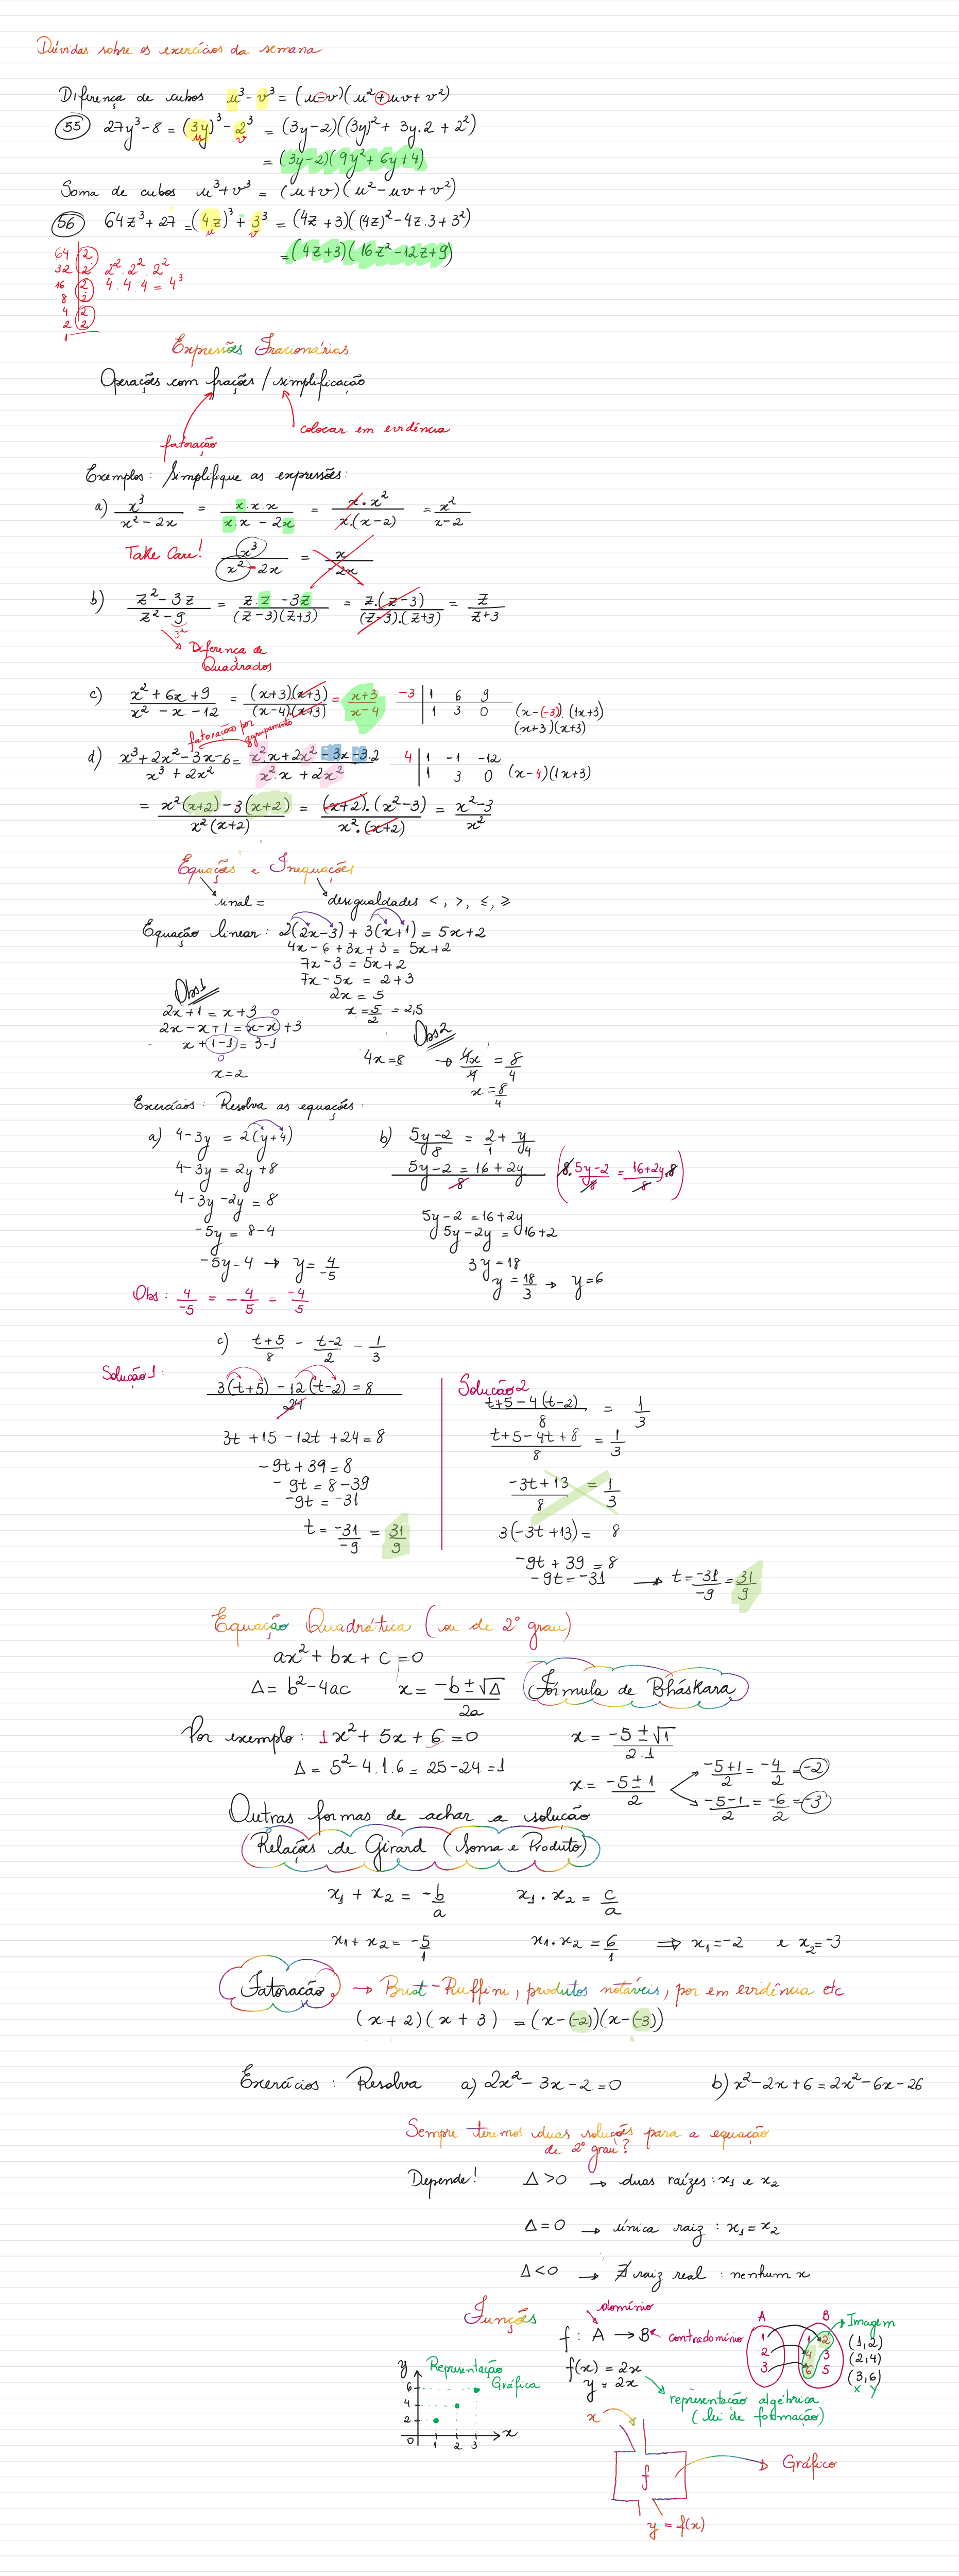 Dúvidas sobre os exercícios da semana
Diferença de cubos u³ - v³ = (u-v)(u²+uv+v²)
55) 27y³-8 = (3y)³ - 2³ = (3y-2)((3y)²+3y.2+2²)
u v
= (3y-2)(9y²+6y+4)
Soma de cubos u³+v³ = (u+v)(u²-uv+v²)
56) 64z³+27 = (4z)³ + 3³ = (4z+3)((4z)²-4z.3+3²)
u v
= (4z+3)(16z²-12z+9)
64 | 2
32 | 2 2².2².2²
16 | 2 4.4.4 = 4³
8 | 2
4 | 2
2 | 2
1
Expressões Fracionárias
Operações com frações / simplificação
colocar em evidência
fatoração
Exemplos: Simplifique as expressões:
a) x³/(x²-2x) = (x.x.x)/(x.x-2x) = (x.x²)/(x.(x-2)) = x²/(x-2)
Take Care! x³/(x²-2x) = x/(-2x)
b) (z²-3z)/(z²-9) = (z.z-3z)/((z-3)(z+3)) = (z.(z-3))/((z-3).(z+3)) = z/(z+3)
3²
Diferença de
Quadrados
c) (x²+6x+9)/(x²-x-12) = ((x+3)(x+3))/((x-4)(x+3)) = (x+3)/(x-4) -3 | 1 6 9
1 3 0 (x-(-3)).(1x+3)
(x+3)(x+3)
fatoração por agrupamento
d) (x³+2x²-3x-6)/(x³+2x²) = (x².x+2x²-3x-3.2)/(x².x+2x²) 4 | 1 -1 -12
1 3 0 (x-4)(1x+3)
= (x²(x+2)-3(x+2))/(x²(x+2)) = ((x+2).(x²-3))/(x².(x+2)) = (x²-3)/x²
Equações e Inequações
sinal = desigualdades <, >, ≤, ≥
Equação linear: 2(2x-3)+3(x+1) = 5x+2
4x-6+3x+3 = 5x+2
7x-3 = 5x+2
7x-5x = 2+3
2x = 5
x = 5/2 = 2,5
Obs1
2x+1 = x+3 0
2x-x+1 = x-x+3
x+1-1 = 3-1
0
x=2
Obs2
4x=8 → 4x/4 = 8/4
x = 8/4
Exercícios: Resolva as equações:
a) 4-3y = 2(y+4)
4-3y = 2y+8
4-3y-2y = 8
-5y = 8-4
-5y=4 → y = 4/-5
Obs: 4/-5 = -4/5 = -4/5
b) (5y-2)/8 = 2/1 + y/4
(5y-2 = 16+2y)/8 (8.(5y-2)/8 = (16+2y)/8.8)
5y-2 = 16+2y
5y-2y = 16+2
3y=18
y = 18/3 → y=6
c) (t+5)/8 - (t-2)/2 = 1/3
Solução 1:
(3(t+5)-12(t-2) = 8)/24
3t+15-12t+24 = 8
-9t+39 = 8
-9t = 8-39
-9t = -31
t = -31/-9 = 31/9
Solução 2
(t+5-4(t-2))/8 = 1/3
(t+5-4t+8)/8 = 1/3
(-3t+13)/8 = 1/3
3(-3t+13) = 8
-9t+39 = 8
-9t = -31 → t = -31/-9 = 31/9
Equação Quadrática (ou de 2º grau)
ax²+bx+c = 0
Δ = b²-4ac x = (-b±√Δ)/2a Fórmula de Bháskara
Por exemplo: 1x²+5x+6 = 0 x = (-5±√1)/2.1
Δ = 5²-4.1.6 = 25-24 = 1
x = (-5±1)/2
(-5+1)/2 = -4/2 = -2
(-5-1)/2 = -6/2 = -3
Outras formas de achar a solução
Relações de Girard (Soma e Produto)
x₁ + x₂ = -b/a x₁.x₂ = c/a
x₁+x₂ = -5/1 x₁.x₂ = 6/1 ⇒ x₁=-2 e x₂=-3
Fatoração → Briot-Ruffini, produtos notáveis, por em evidência etc
(x+2)(x+3) = (x-(-2))(x-(-3))
Exercícios: Resolva a) 2x²-3x-2=0 b) x²-2x+6 = 2x²-6x-26
Sempre teremos duas soluções para a equação
de 2º grau?
Depende! Δ>0 → duas raízes: x₁ e x₂
Δ=0 → única raiz: x₁=x₂
Δ<0 → ∄ raiz real: nenhum x
Funções
domínio
f: A → B contradomínio
f(x) = 2x
y = 2x
representação algébrica
(lei de formação)
A B Imagem
1 1 2 (1,2)
2 4 3 (2,4)
3 6 5 (3,6)
x y
y Representação
Gráfica
6
4
2
0 1 2 3 x
x
f
Gráfico
y = f(x)